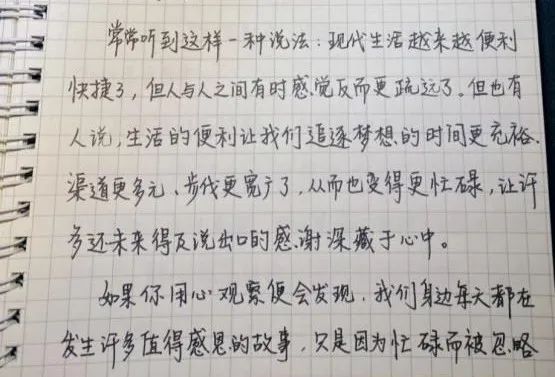 常常听到这样一种说法：现代生活越来越便利
快捷了，但人与人之间有时感觉反而更疏远了。但也有
人说，生活的便利让我们追逐梦想的时间更充裕、
渠道更多元、步伐更宽广了，从而也变得更忙碌，让许
多还未来得及说出口的感谢深藏于心中。
如果你用心观察便会发现，我们身边每天都在
发生许多值得感恩的故事，只是因为忙碌而被忽略